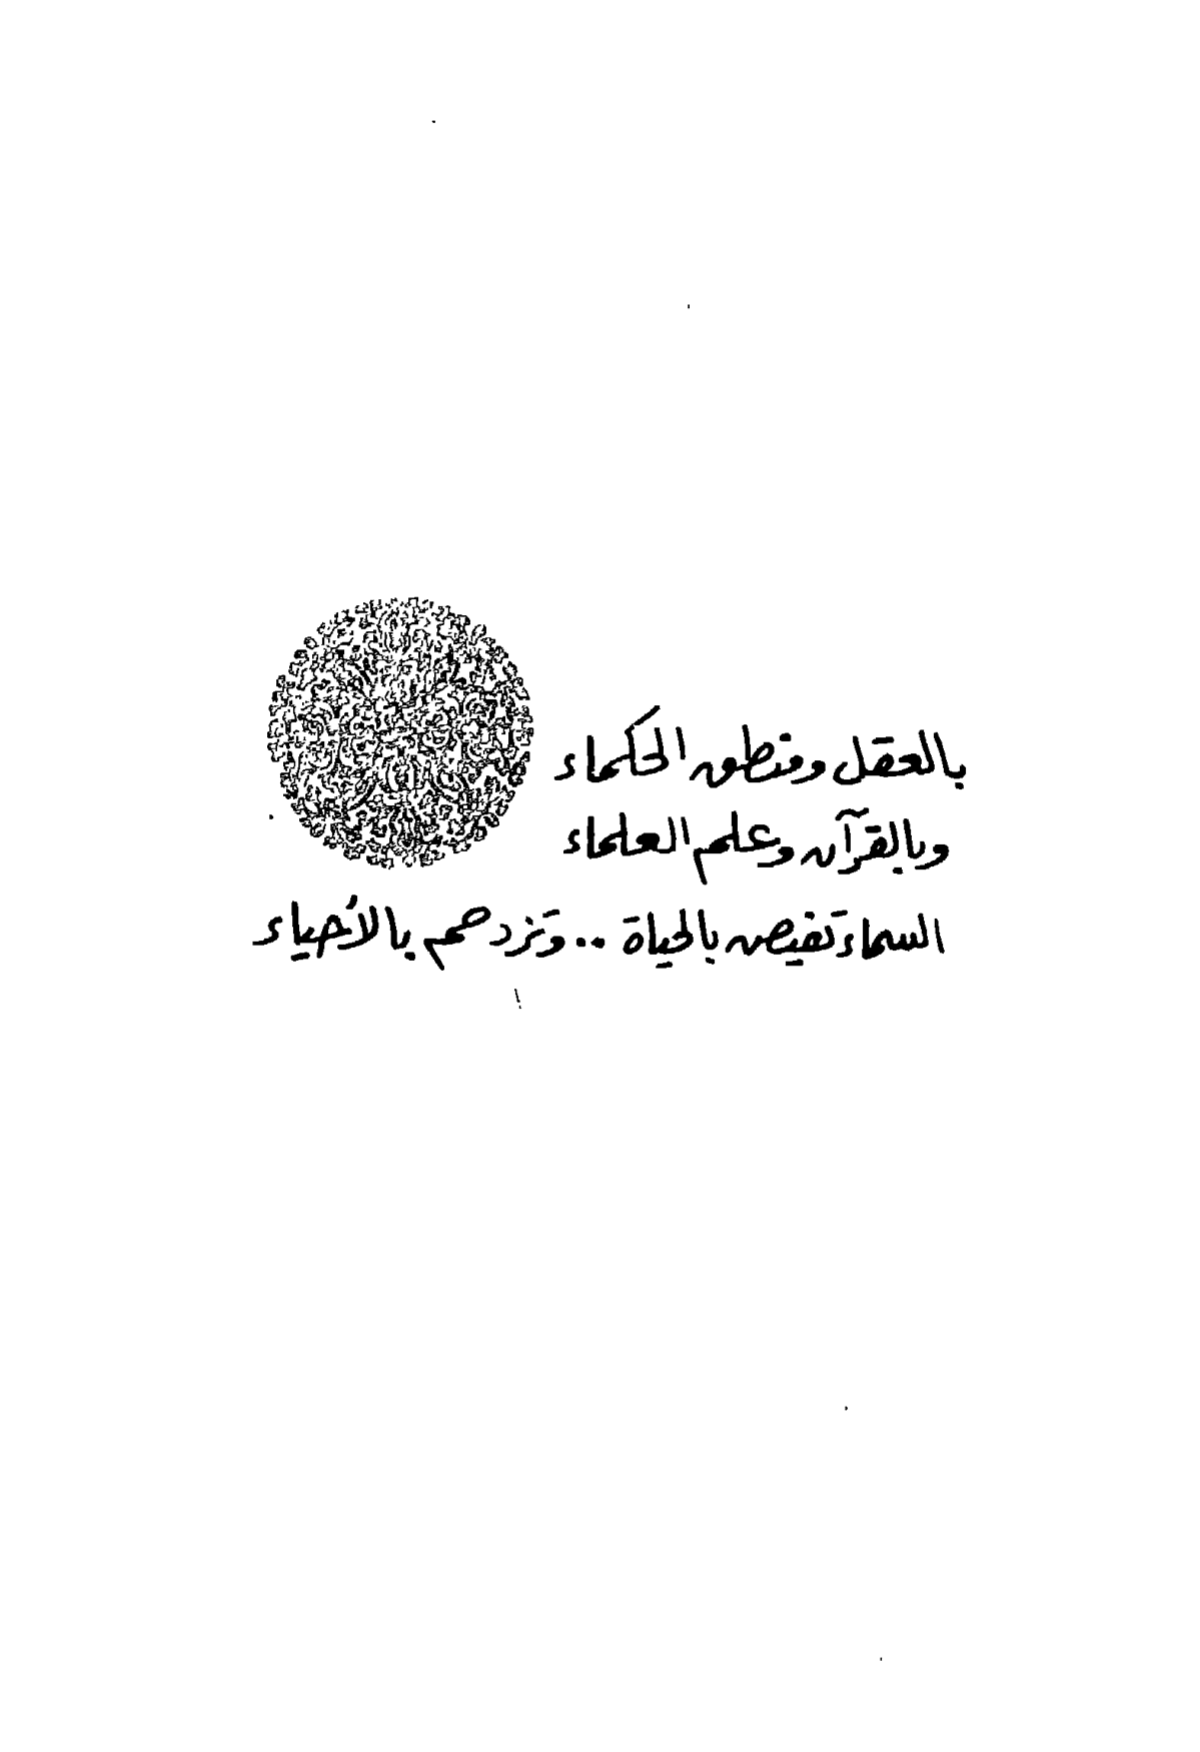 بالعقل ومنطق الحكماء
وبالقرآن وعلم العلماء
السماء تفيض بالحياة .. وتزدحم بالأحياء